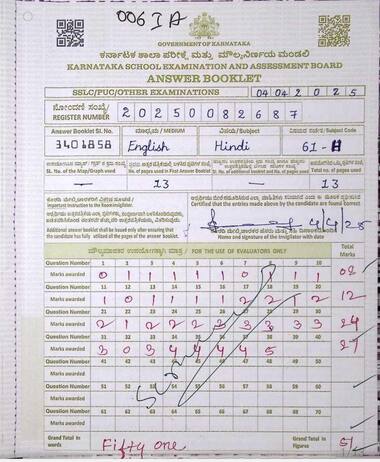 006 I A
GOVERNMENT OF KARNATAKA
ಕರ್ನಾಟಕ ಶಾಲಾ ಪರೀಕ್ಷೆ ಮತ್ತು ಮೌಲ್ಯನಿರ್ಣಯ ಮಂಡಲಿ
KARNATAKA SCHOOL EXAMINATION AND ASSESSMENT BOARD
ANSWER BOOKLET
SSLC/PUC/OTHER EXAMINATIONS 04 04 2025
ನೋಂದಣಿ ಸಂಖ್ಯೆ/
REGISTER NUMBER 20250082687
Answer Booklet Sl. No. ಮಾಧ್ಯಮ / MEDIUM ವಿಷಯ/Subject ವಿಷಯದ ಸಂಕೇತ / Subject Code
3404858 English Hindi 61-H
Sl. No. of the Map/Graph used No. of pages used in First Answer Booklet Total No. of pages used
— 13 — 13
Important Instruction to the Room Invigilator: Certified that the entries made above by the candidate are found correct
Additional answer booklet shall be issued only after ensuring
that the candidate has fully utilized all the pages of the answer booklet.
4/4/25
Name and signature of the Invigilator with date
ಮೌಲ್ಯಮಾಪಕರ ಉಪಯೋಗಕ್ಕಾಗಿ ಮಾತ್ರ / FOR THE USE OF EVALUATORS ONLY Total Marks
Question Number 1 2 3 4 5 6 7 8 9 10
Marks awarded 0 1 1 1 1 1 0 1 1 1 08
Question Number 11 12 13 14 15 16 17 18 19 20
Marks awarded 1 0 1 1 1 2 2 1 2 12
Question Number 21 22 23 24 25 26 27 28 29 30
Marks awarded 2 1 2 2 2 3 3 3 3 3 24
Question Number 31 32 33 34 35 36 37 38 39 40
Marks awarded 3 0 3 4 4 4 4 5 27
Question Number 41 42 43 44 45 46 47 48 49 50
Marks awarded
Question Number 51 52 53 54 55 56 57 58 59 60
Marks awarded
Question Number 61 62 63 64 65 66 67 68 69 70
Marks awarded
Grand Total in words Fifty one Grand Total in Figures 51